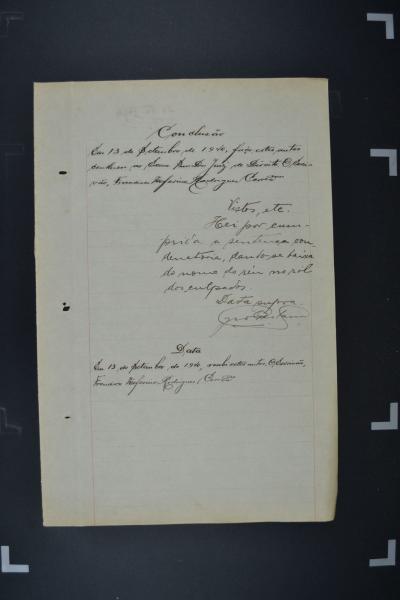 Conclusão
Em 13 de Setembro de 1940, faço estes autos
conclusos ao Snr. Dr. Juiz de Direito. O Escri-
vão, Francisco Rodrigues
Vistos, etc.
Hei por cum-
prida a sentença con-
denatoria, dando-se baixa
do nome do réu no rol
dos culpados.
Data supra.
Data
Em 13 de Setembro de 1940, recebi estes autos. O Escrivão,
Francisco Rodrigues